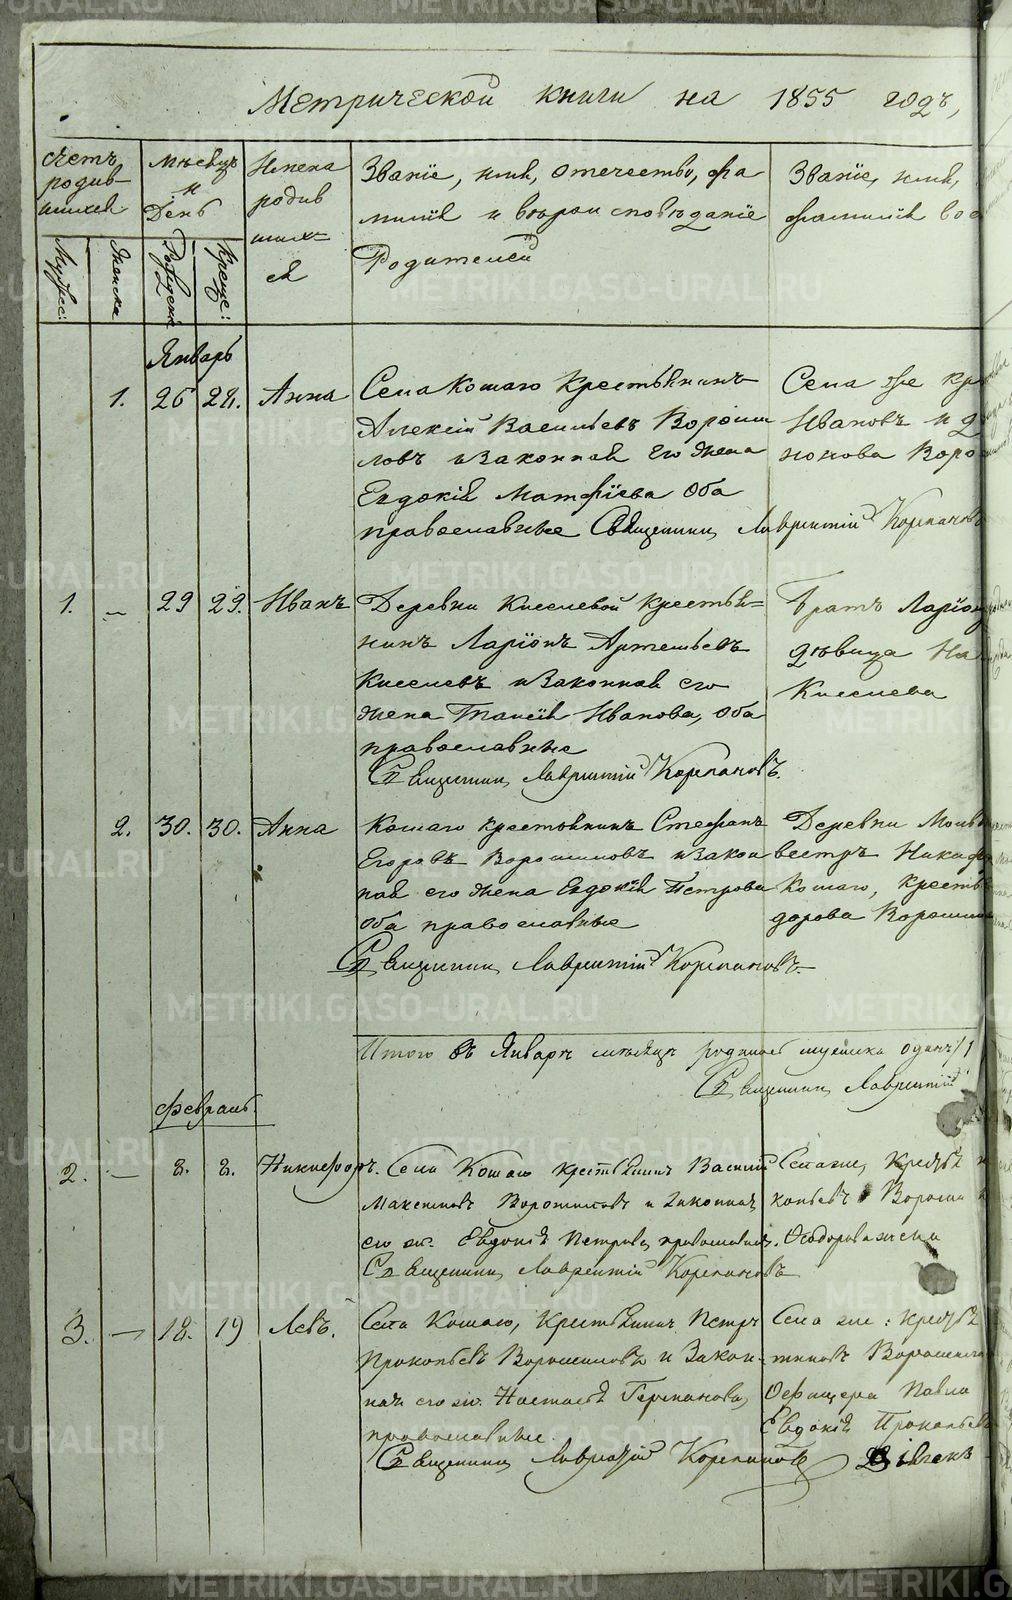 Метрической книги на 1855 годъ,
Счетъ родив- шихся
Мѣсяцъ и День
Имена родив шихъ= ся
Званіе, имя, отечество, фа милія и вѣроисповѣданіе Родителей
Званіе, имя, фамилія вос
Мужес:
Женска
Рожденія
Креще:
Январь
1. 26 28. Анна
Села Кошаго Крестьянинъ
Алексій Васильевъ Вороши
ловъ и Законная Его жена
Евдокія Матфіева Оба
православные Священникъ Лаврентій Корепановъ
Села же кр
Ивановъ и д
Воро
1. — 29 29. Иванъ
Деревни Киселевой крестья=
нинъ Ларіонъ Артемьевъ
Киселевъ и Законная его
жена Таисія Иванова, оба
православные
Священникъ Лаврентій Корепановъ.
Братъ Ларіон
дѣвица На
Киселева
2. 30. 30. Анна
Кошаго крестьянинъ Стефанъ
Егоровъ Ворошиловъ и Закон
ная его жена Евдокія Петрова
оба православные
Священникъ Лаврентій Корепановъ
Деревни
вестръ Никиф
Кошаго, крестья
дорова Вороши
Итого въ Январѣ мѣсяцѣ родилось мужеска одинъ /1
Священникъ Лаврентій
Февраль.
2. — 8. 8. Никифоръ.
Села Кошаго крестьянинъ Василій
Максимовъ Ворошиловъ и Законная
его ж. Евдокія Петрова, православн.
Священникъ Лаврентій Корепановъ
Села же, Крест
копьевъ Вороши
Ѳеодорова жена
3. — 18. 19 Левъ.
Села Кошаго, Крестьянинъ Петръ
Прокопьевъ Ворошиловъ и Закон-
ная его ж. Настасья Германова,
православные.
Священникъ Лаврентій Корепановъ
Села же: крест
Ворошилов
Офицера Павла
Евдокія Прокопьев
METRIKI.GASO-URAL.RU